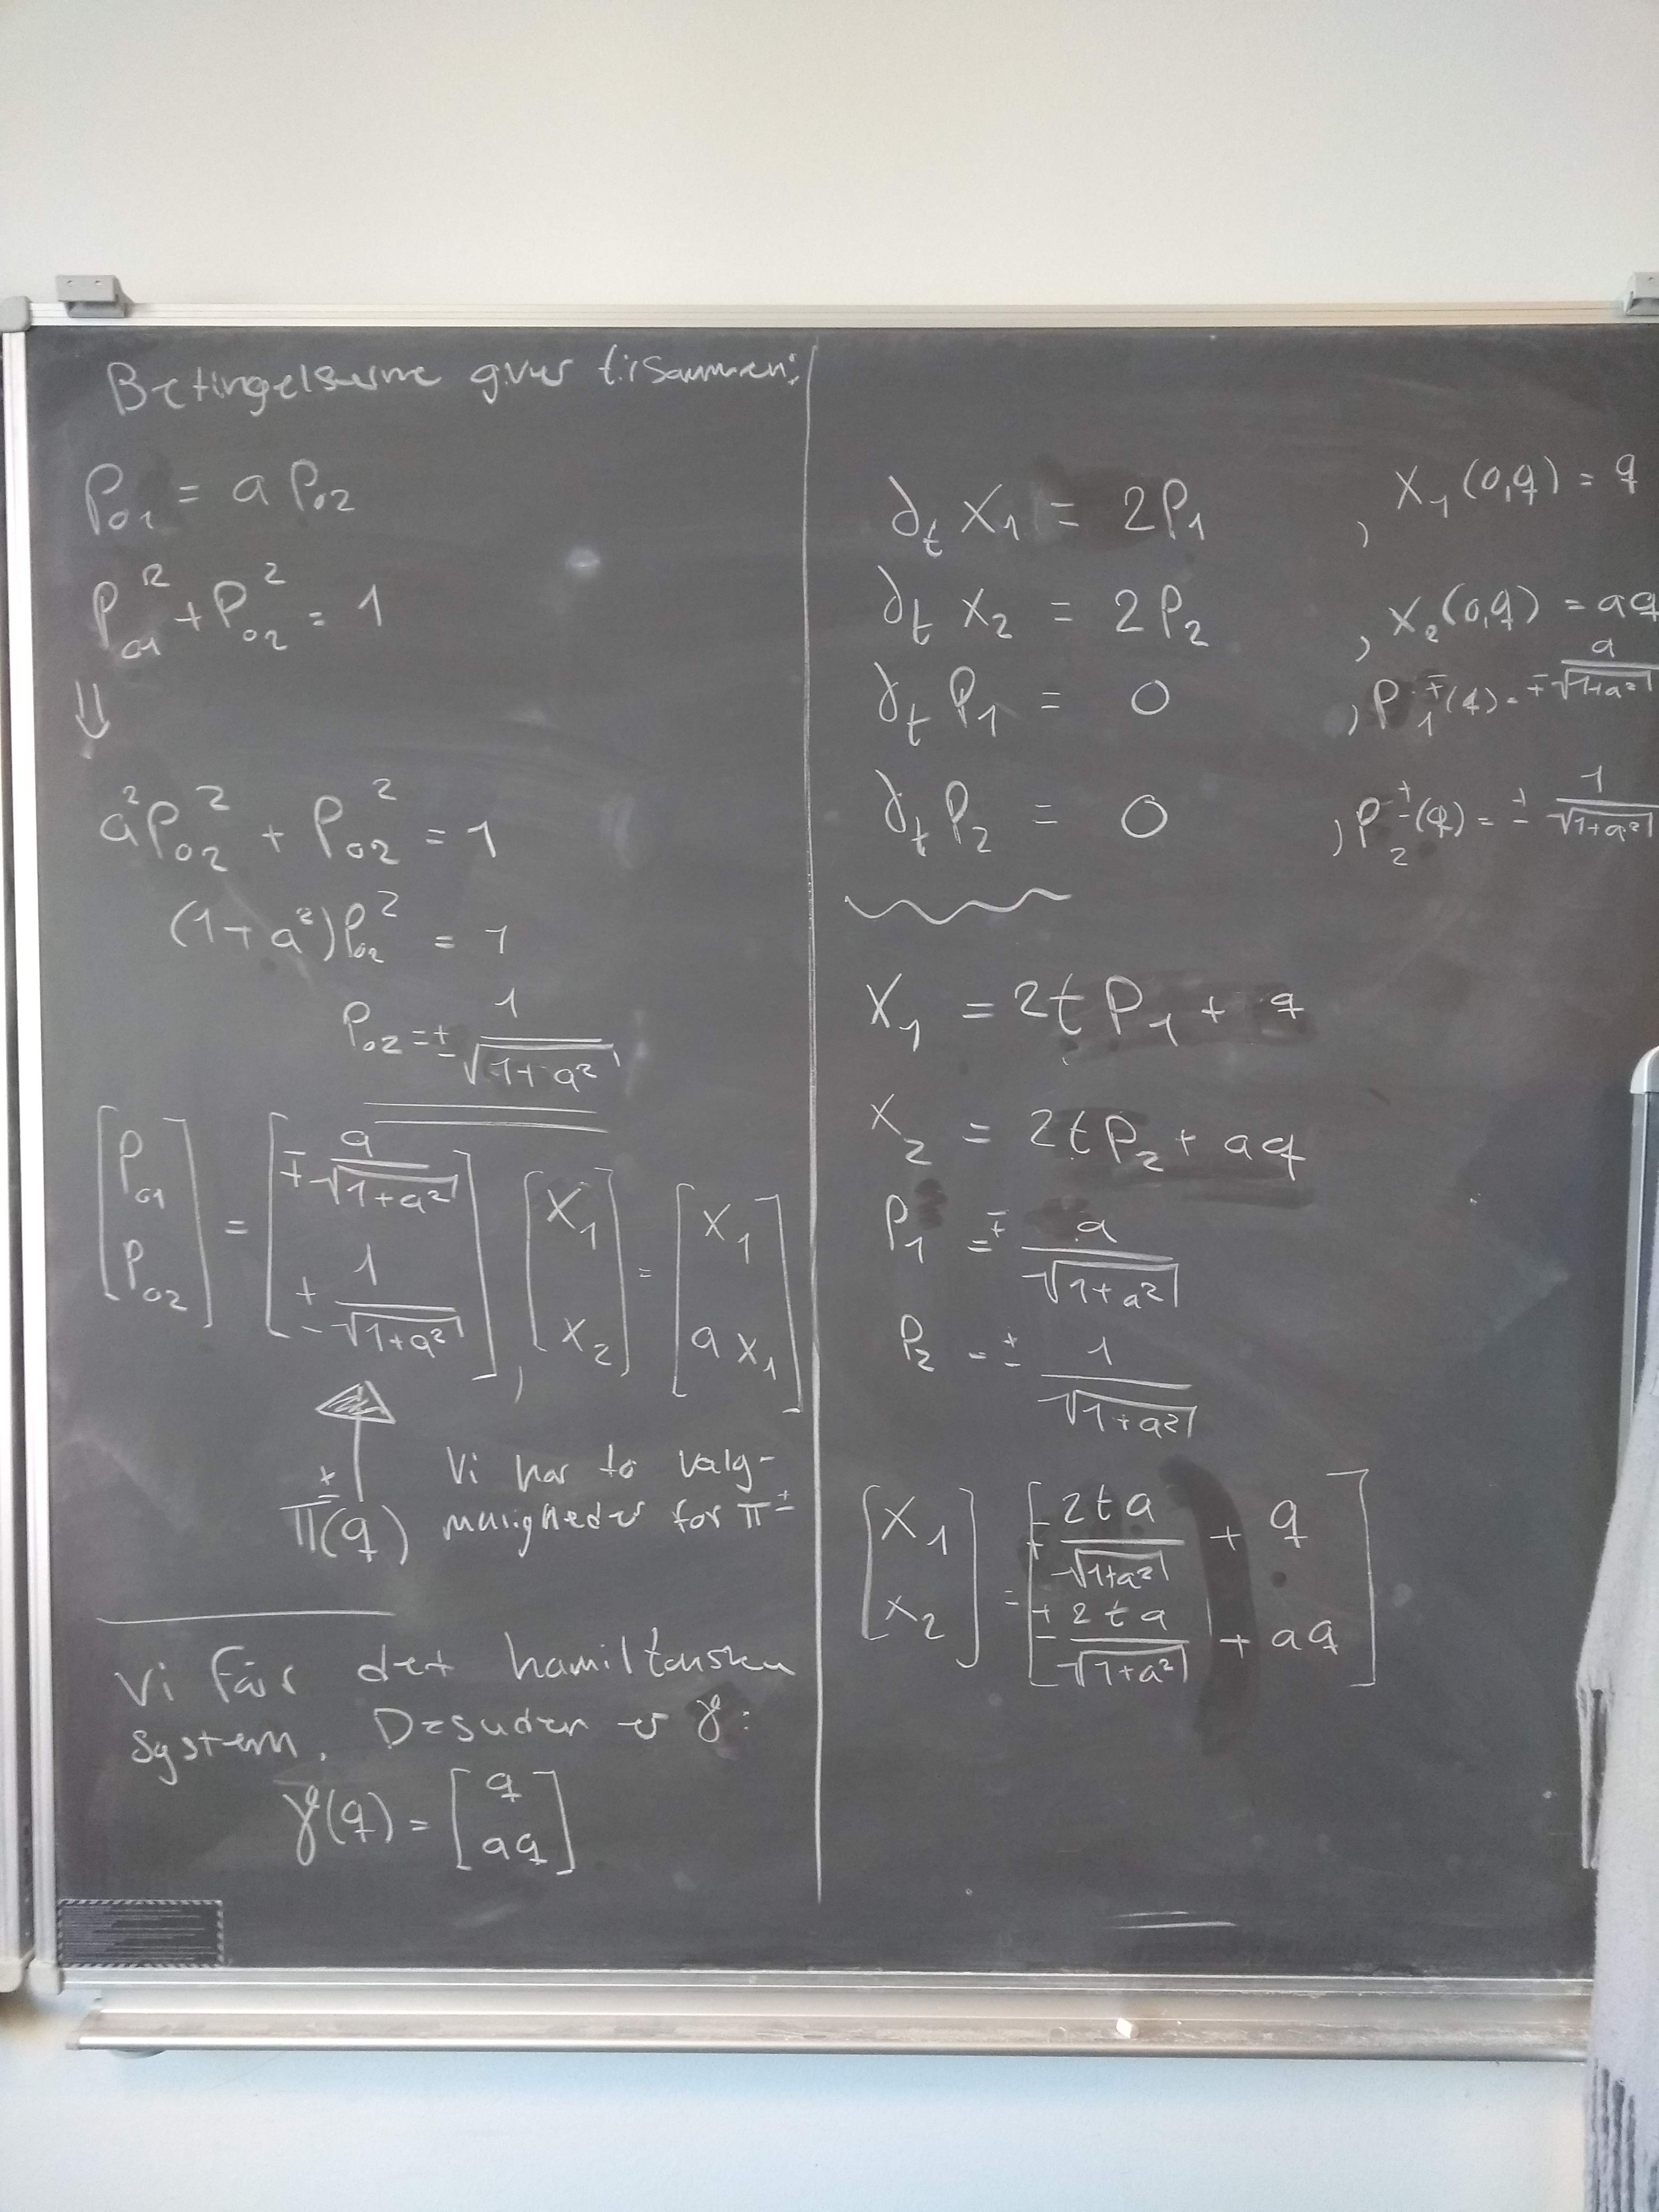 Betingelserne giver tilsammen:
P₀₁ = a P₀₂
P₀₁² + P₀₂² = 1
⇓
a²P₀₂² + P₀₂² = 1
(1+a²)P₀₂² = 1
P₀₂ = ± 1/√(1+a²)
[P₀₁; P₀₂] = [∓ a/√(1+a²); ± 1/√(1+a²)], [X₁; X₂] = [X₁; a X₁]
π±(q) Vi har to valg-
muligheder for π±
Vi får det hamiltonske
system. Desuden er γ:
γ(q) = [q; aq]
∂t X₁ = 2P₁, X₁(0,q) = q
∂t X₂ = 2P₂, X₂(0,q) = aq
∂t P₁ = 0, P₁∓(q) = ∓ a/√(1+a²)
∂t P₂ = 0, P₂±(q) = ± 1/√(1+a²)
X₁ = 2tP₁ + q
X₂ = 2tP₂ + aq
P₁ = ∓ a/√(1+a²)
P₂ = ± 1/√(1+a²)
[X₁; X₂] = [∓ 2ta/√(1+a²) + q; ± 2ta/√(1+a²) + aq]